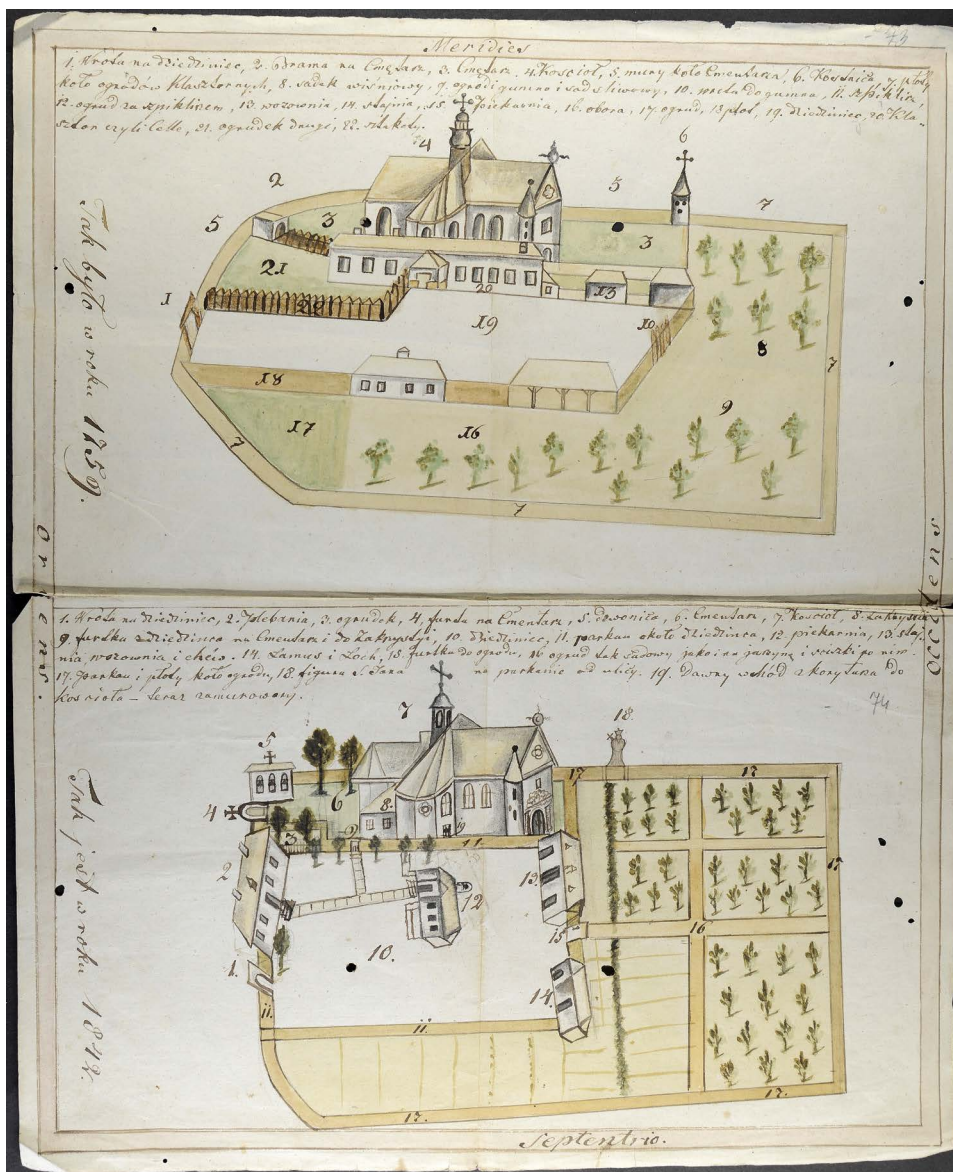 Meridies
1. Wrota na dziedziniec, 2. Brama na Cmętarz, 3. Cmętarz, 4. Kościoł, 5. mury koło Cmentarza, 6. Kostnica, 7. płoty
koło ogrodów Klasztornych, 8. sadek wiśniowy, 9. ogrod i gumno i sad śliwowy, 10. wrota do gumna, 11. szpiklirz,
12. ogrud za szpiklirzem, 13. wozownia, 14. stajnia, 15. Piekarnia, 16. obora, 17. ogrud, 18 płot, 19. dziedziniec, 20. Kla-
sztor czyli Celle, 21. ogrudek drugi, 22. sztakety.
4
6
2
5
7
5
3
3
21
1
20
13
22
19
10
8
7
18
9
17
16
7
7
Tak było w roku 1759.
Oriens.
Occidens
1. Wrota na dziedziniec, 2. Plebania, 3. ogrudek, 4. furta na Cmentarz, 5. dzwonica, 6. Cmentarz, 7. Kościoł, 8. Zakrystia
9. furtka z dziedzinca na Cmentarz i do Zakrystyi, 10. Dziedziniec, 11. parkan około dziedzinca, 12. piekarnia, 13. staj-
nia, wozownia i chlew, 14. Lamus i Loch, 15. furtka do ogrodu, 16 ogrud tak sadowy jako i na jarzynę i sciszki po nim
17. Parkan i płoty koło ogrodu, 18. figura S. Jana na parkanie od ulicy. 19. Dawny wchód z korytarza do
kościoła – teraz zamurowany.
74
7
18.
5
17
17
4
6
8.
3
9
19
11
2
13.
17
12
15
16
10.
1.
14.
11.
11
17.
17.
Tak jest w roku 1842.
Septentrio.